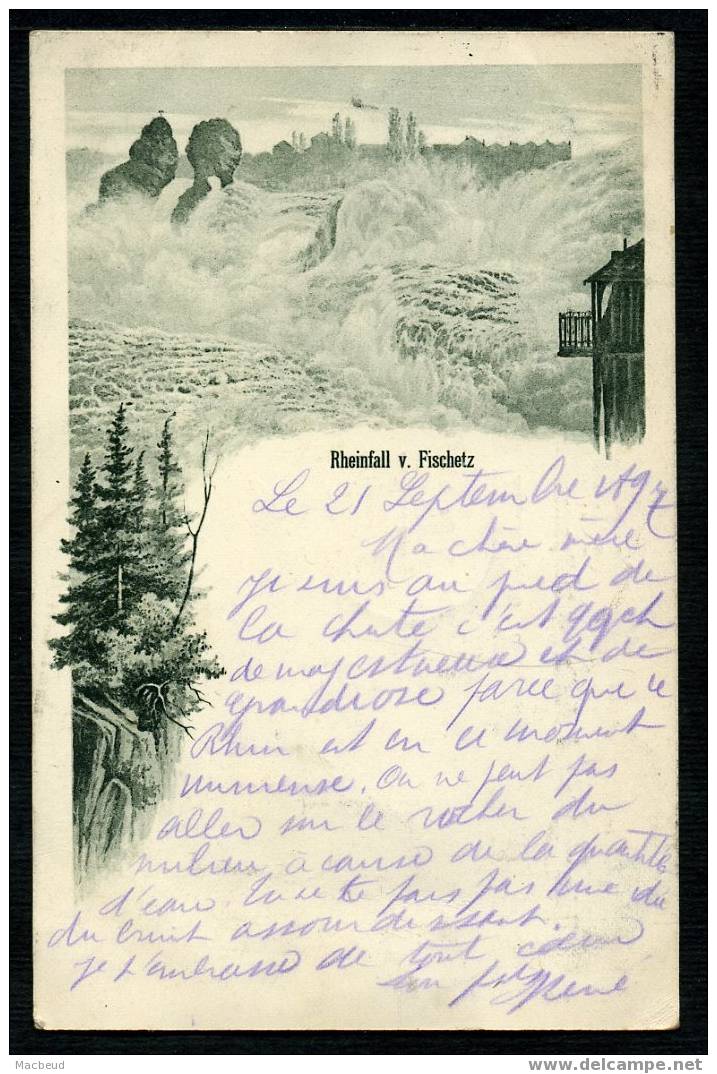 Rheinfall v. Fischetz
Le 21 Septembre 1897
Ma chère mère
Je suis au pied de
la chute c'est qqch
de majestueux et de
grandiose parce que le
Rhin est en ce moment
immense. On ne peut pas
aller sur le rocher du
milieu à cause de la quantité
d'eau. Tu ne te fais pas une
du bruit assourdissant.
Je t'embrasse de tout cœur
Ton fils René
Macbeud
www.delcampe.net